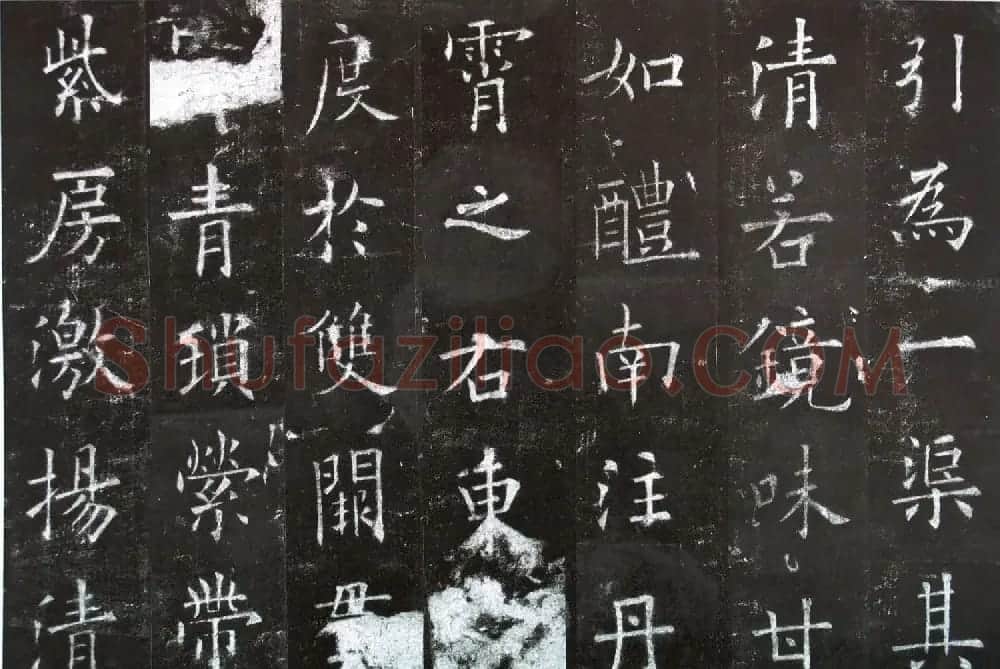 引為一渠其
清若鏡味甘
如醴南注丹
霄之右東
度於雙闕
青瑣縈帶
紫房激揚清
Shufaziliao.COM